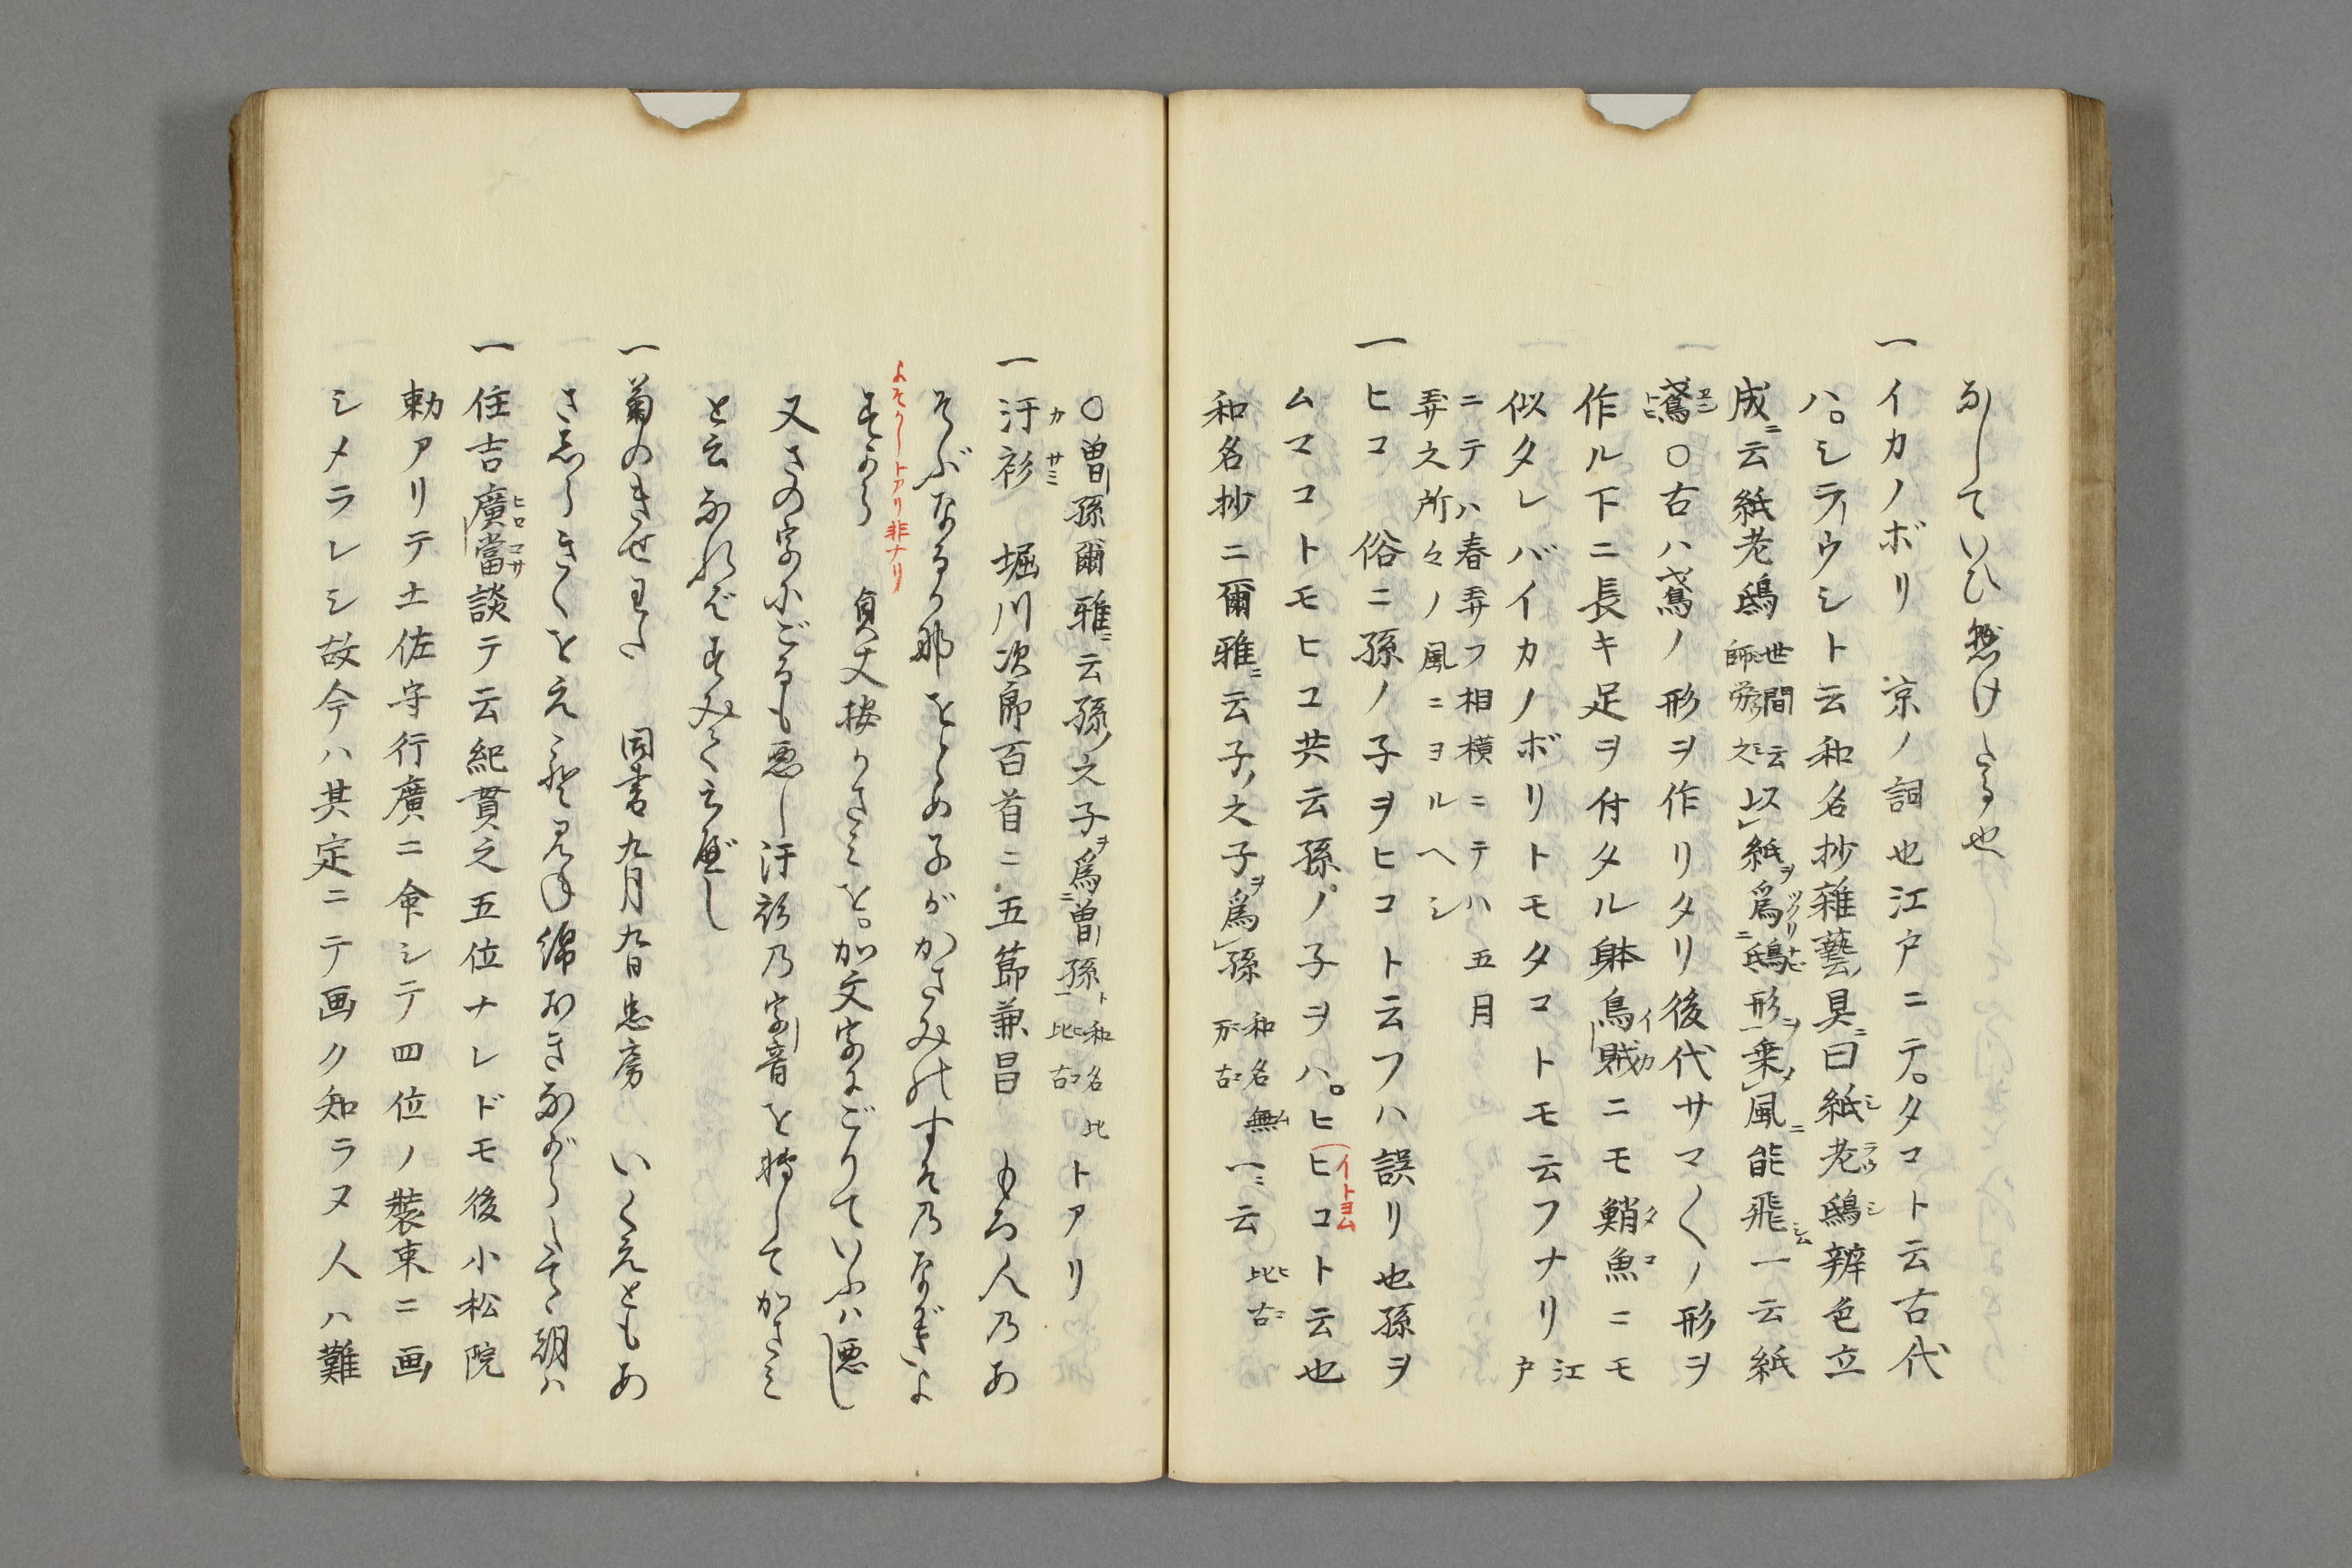 なしていひ懸けたる也
一イカノボリ 京ノ詞也江戸ニテ。タコト云古代
ハ。シラウシト云和名抄雜藝ノ具ニ曰紙老鴟辨色立
成ニ云紙老鴟世間云師労之以紙ヲ爲鴟形ヲ乗風ニ能飛一云紙
鳶○古ハ鳶ノ形ヲ作リタリ後代サマ〱ノ形ヲ
作ル下ニ長キ足ヲ付タル躰烏賊ニモ鮹魚ニモ
似タレバイカノボリトモタコトモ云フナリ江戸
ニテハ春弄フ相模ニテハ五月
弄之所々ノ風ニヨルヘシ
一ヒコ 俗ニ孫ノ子ヲヒコト云フハ誤リ也孫ヲ
ムマコトモヒコ共云孫ノ子ヲハ。ヒヒコト云也
イトヨム
和名抄ニ爾雅ニ云子ノ之子ヲ爲孫和名無万古一ニ云比古
○曽孫爾雅ニ云孫ノ之子ヲ爲曽孫ト和名比比古トアリ
一汗衫 堀川次郎百首ニ五節兼昌 もろ人乃あ
そぶなるか那をとめ子がかさみ乃すそ乃ながきよ
すから 貞丈按かさミを。加文字にごりていふハ悪し
よそひートアリ非ナリ
又さの字にごるも悪し汗衫乃字音を轉してかさミ
と云なれバすみて云べし
一菊のきせわた 同書九月九日忠房 いくえともあ
さ志らきくを 綿おきながら 朝ハ
一住吉廣當談テ云紀貫之五位ナレドモ後小松院
勅アリテ土佐守行廣ニ命シテ四位ノ裝束ニ画
シメラレシ故今ハ其定ニテ画ク知ラヌ人ハ難